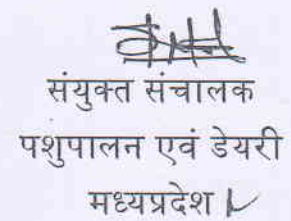 संयुक्त संचालक
पशुपालन एवं डेयरी
मध्यप्रदेश